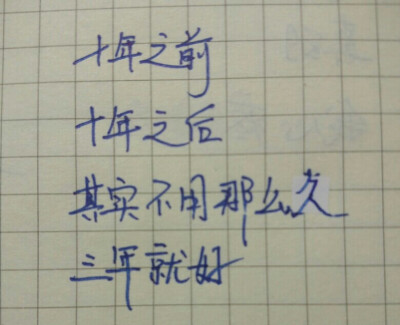 十年之前
十年之后
其实不用那么久
三年就好